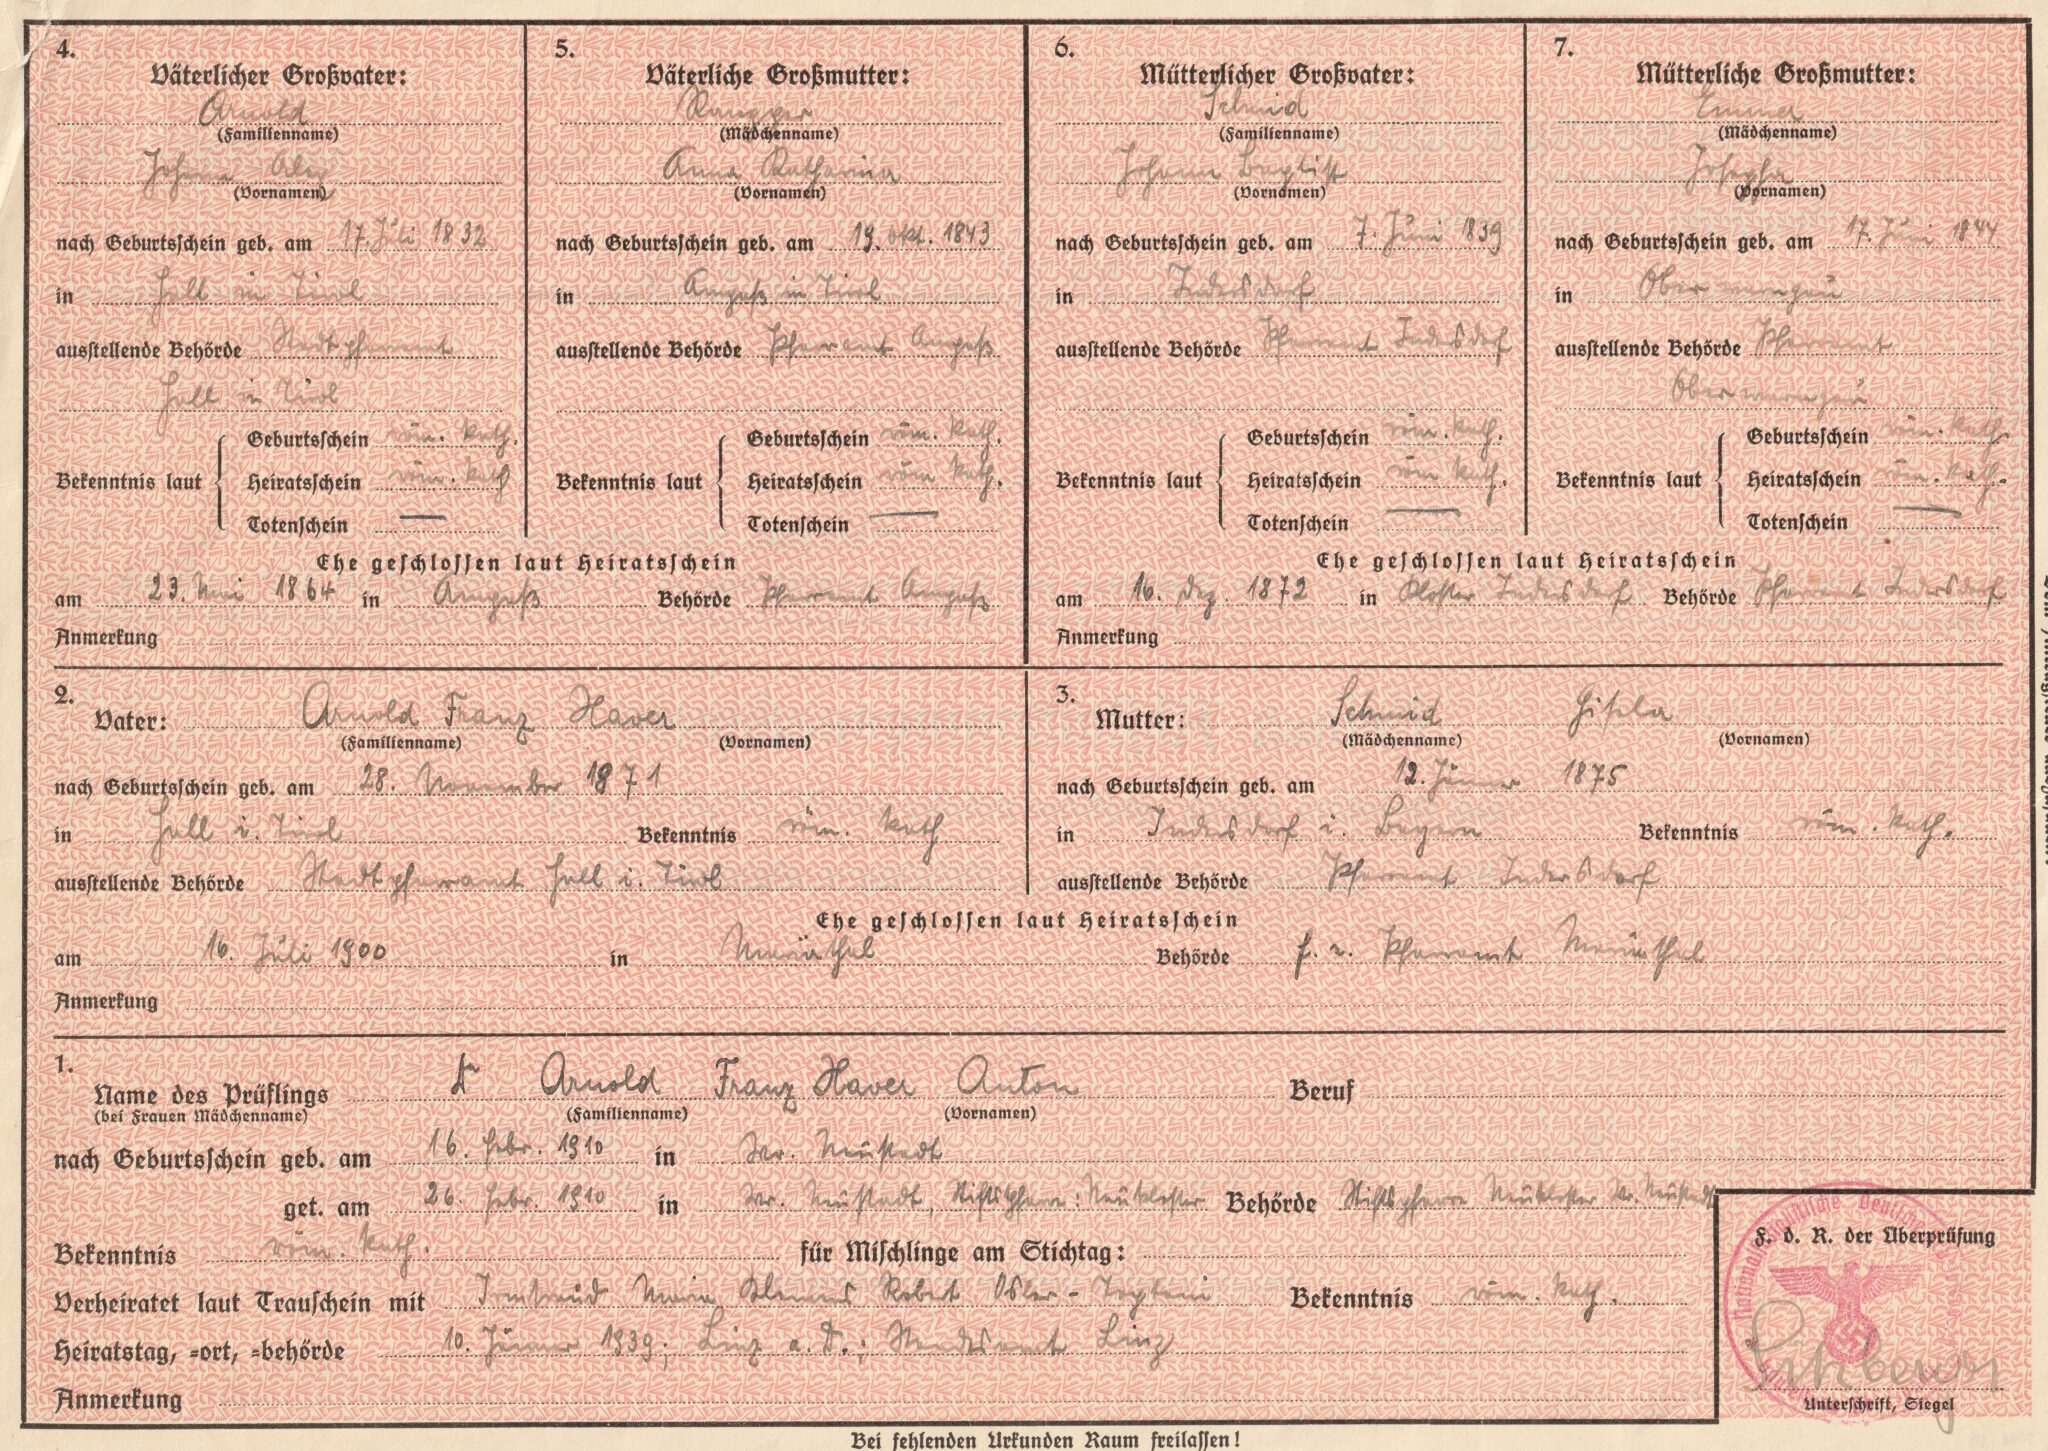 4.
Väterlicher Großvater:
Arnold
(Familienname)
Johann Alex
(Vornamen)
nach Geburtsschein geb. am 17. Juli 1832
in Hall in Tirol
ausstellende Behörde Stadtpfarramt
Hall in Tirol
Bekenntnis laut
Geburtsschein röm. kath.
Heiratsschein röm. kath
Totenschein —
5.
Väterliche Großmutter:
(Mädchenname)
Anna Katharina
(Vornamen)
nach Geburtsschein geb. am 19. Okt. 1843
in Ampaß in Tirol
ausstellende Behörde Pfarramt Ampaß
Bekenntnis laut
Geburtsschein röm. kath.
Heiratsschein röm. kath.
Totenschein —
Ehe geschlossen laut Heiratsschein
am 23. Mai 1864 in Ampaß Behörde Pfarramt Ampaß
Anmerkung
6.
Mütterlicher Großvater:
Schmid
(Familienname)
Johann Baptist
(Vornamen)
nach Geburtsschein geb. am 7. Juni 1839
in Indersdorf
ausstellende Behörde Pfarramt Indersdorf
Bekenntnis laut
Geburtsschein röm. kath.
Heiratsschein röm. kath.
Totenschein —
7.
Mütterliche Großmutter:
(Mädchenname)
Josepha
(Vornamen)
nach Geburtsschein geb. am 17. Juni 1844
in Oberwarngau
ausstellende Behörde Pfarramt
Oberwarngau
Bekenntnis laut
Geburtsschein röm. kath.
Heiratsschein röm. kath.
Totenschein —
Ehe geschlossen laut Heiratsschein
am 16. Dez. 1872 in Kloster Indersdorf Behörde Pfarramt Indersdorf
Anmerkung
2.
Vater: Arnold Franz Xaver
(Familienname) (Vornamen)
nach Geburtsschein geb. am 28. November 1871
in Hall i. Tirol Bekenntnis röm. kath
ausstellende Behörde Stadtpfarramt Hall i. Tirol
3.
Mutter: Schmid Gisela
(Mädchenname) (Vornamen)
nach Geburtsschein geb. am 12. Jänner 1875
in Indersdorf i. Bayern Bekenntnis röm. kath.
ausstellende Behörde Pfarramt Indersdorf
Ehe geschlossen laut Heiratsschein
am 16. Juli 1900 in Mariathal Behörde Pfarramt Mariathal
Anmerkung
1.
Name des Prüflings Dr Arnold Franz Xaver Anton Beruf
(bei Frauen Mädchenname) (Familienname) (Vornamen)
nach Geburtsschein geb. am 16. Febr. 1910 in Wr. Neustadt
get. am 26. Febr. 1910 in Wr. Neustadt, Stiftspfarre: Neukloster Behörde Stiftspfarre Neukloster Wr. Neustadt
Bekenntnis röm. kath. für Mischlinge am Stichtag:
Verheiratet laut Trauschein mit Irmtraud Maria Robert Bekenntnis röm. kath.
Heiratstag, =ort, =behörde 10. Jänner 1939; Linz a. D.; Standesamt Linz
Anmerkung
F. d. R. der Überprüfung
Nationalsozialistische Deutsche
Unterschrift, Siegel
Bei fehlenden Urkunden Raum freilassen!